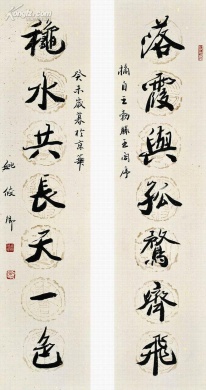 落霞與孤鶩齊飛
摘自王勃滕王閣序
穐水共長天一色
癸未歲暮於京華
姚俊卿